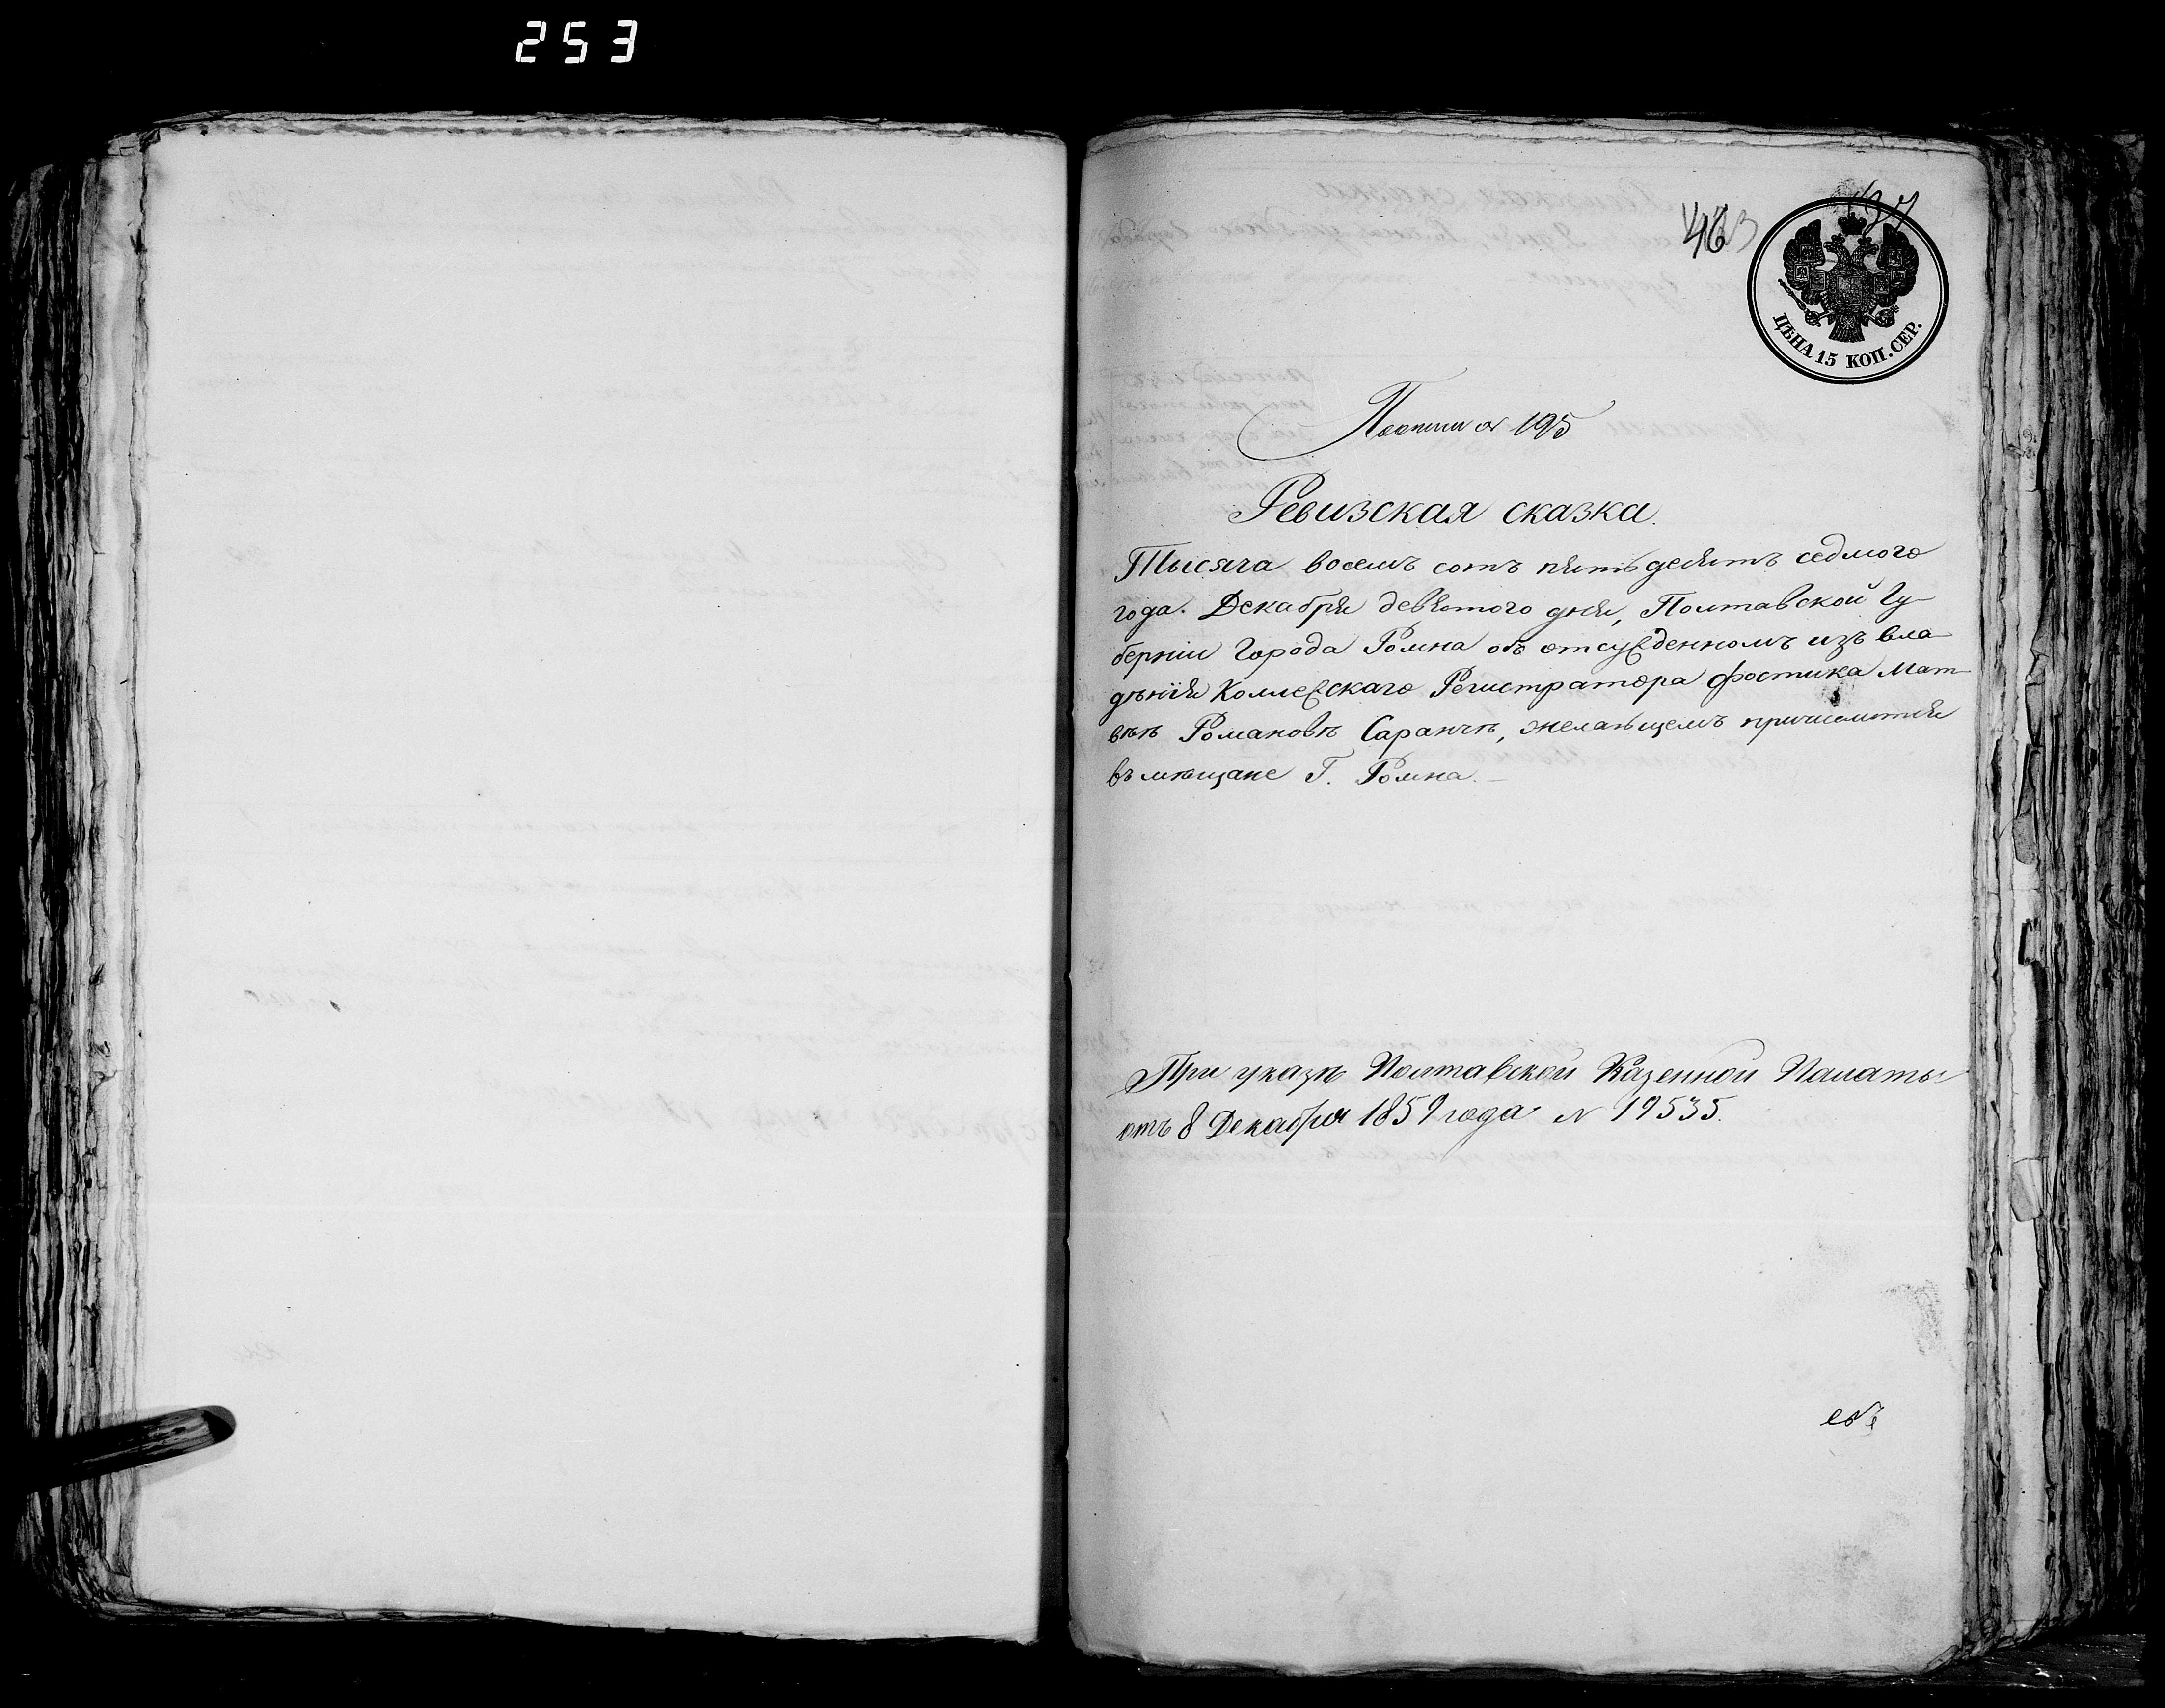 253
463
137
ЦѢНА 15 КОП. СЕР.
195
Ревизская сказка.
Тысяча восемъ сотъ пятьдесятъ седмого
года. Декабря девятого дня, Полтавской Гу-
берніи Города Ромна объ отсужденномъ изъ вла-
дѣнія Коллежскаго Регистратора Фостика Мат-
вѣѣ Романовѣ Саранчѣ, желающемъ причислится
въ мѣщане Г. Ромна. –
При указѣ Полтавской Казенной Палаты
отъ 8 Декабря 1859 года N 19535.